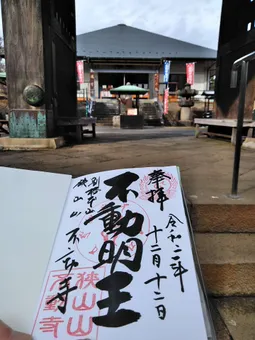 奉拝
令和二年
十二月十二日
不動明王
別格本山
狭山山不動寺
狭山山
不動寺